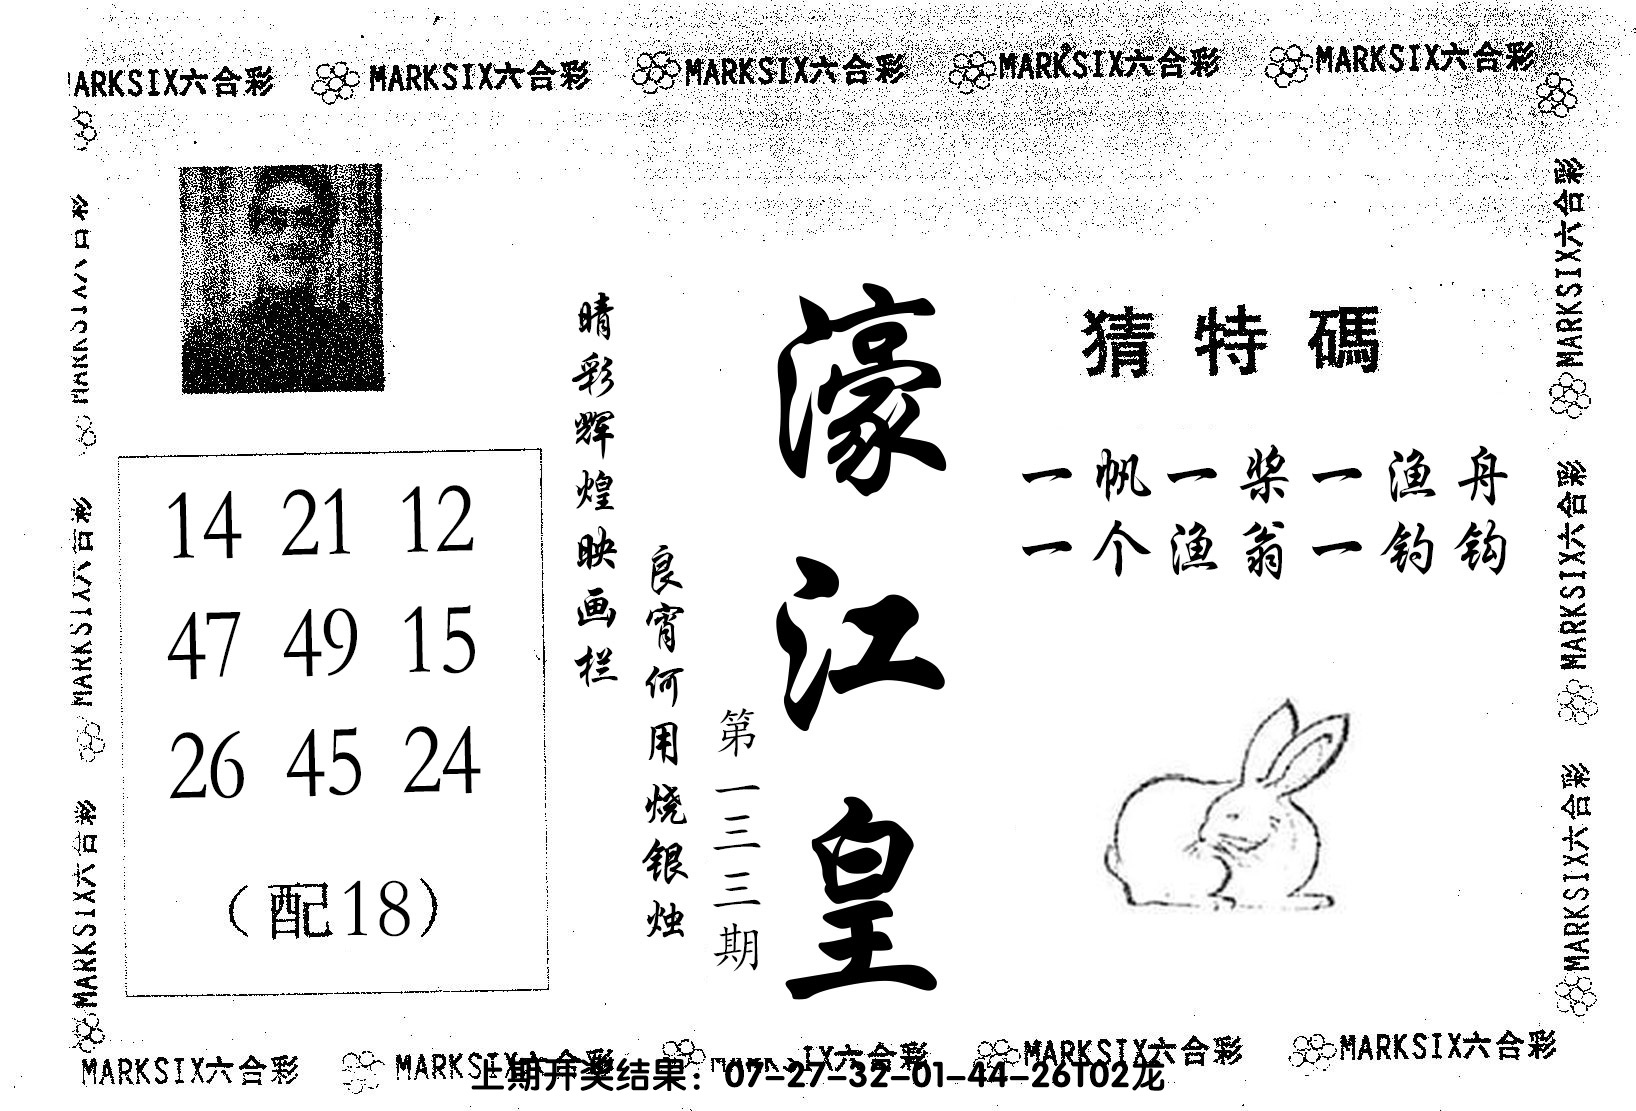 MARKSIX六合彩 MARKSIX六合彩 MARKSIX六合彩 MARKSIX六合彩 MARKSIX六合彩
14 21 12
47 49 15
26 45 24
（配18）
晴彩辉煌映画栏
良宵何用烧银烛
第一三三期
濠江皇
猜特碼
一帆一桨一渔舟
一个渔翁一钓钩
MARKSIX六合彩
MARKSIX六合彩
MARKSIX六合彩
MARKSIX六合彩
MARKSIX六合彩
MARKSIX六合彩
MARKSIX六合彩 MARKSIX六合彩 MARKSIX六合彩 MARKSIX六合彩 MARKSIX六合彩
上期开奖结果：07-27-32-01-44-26T02龙